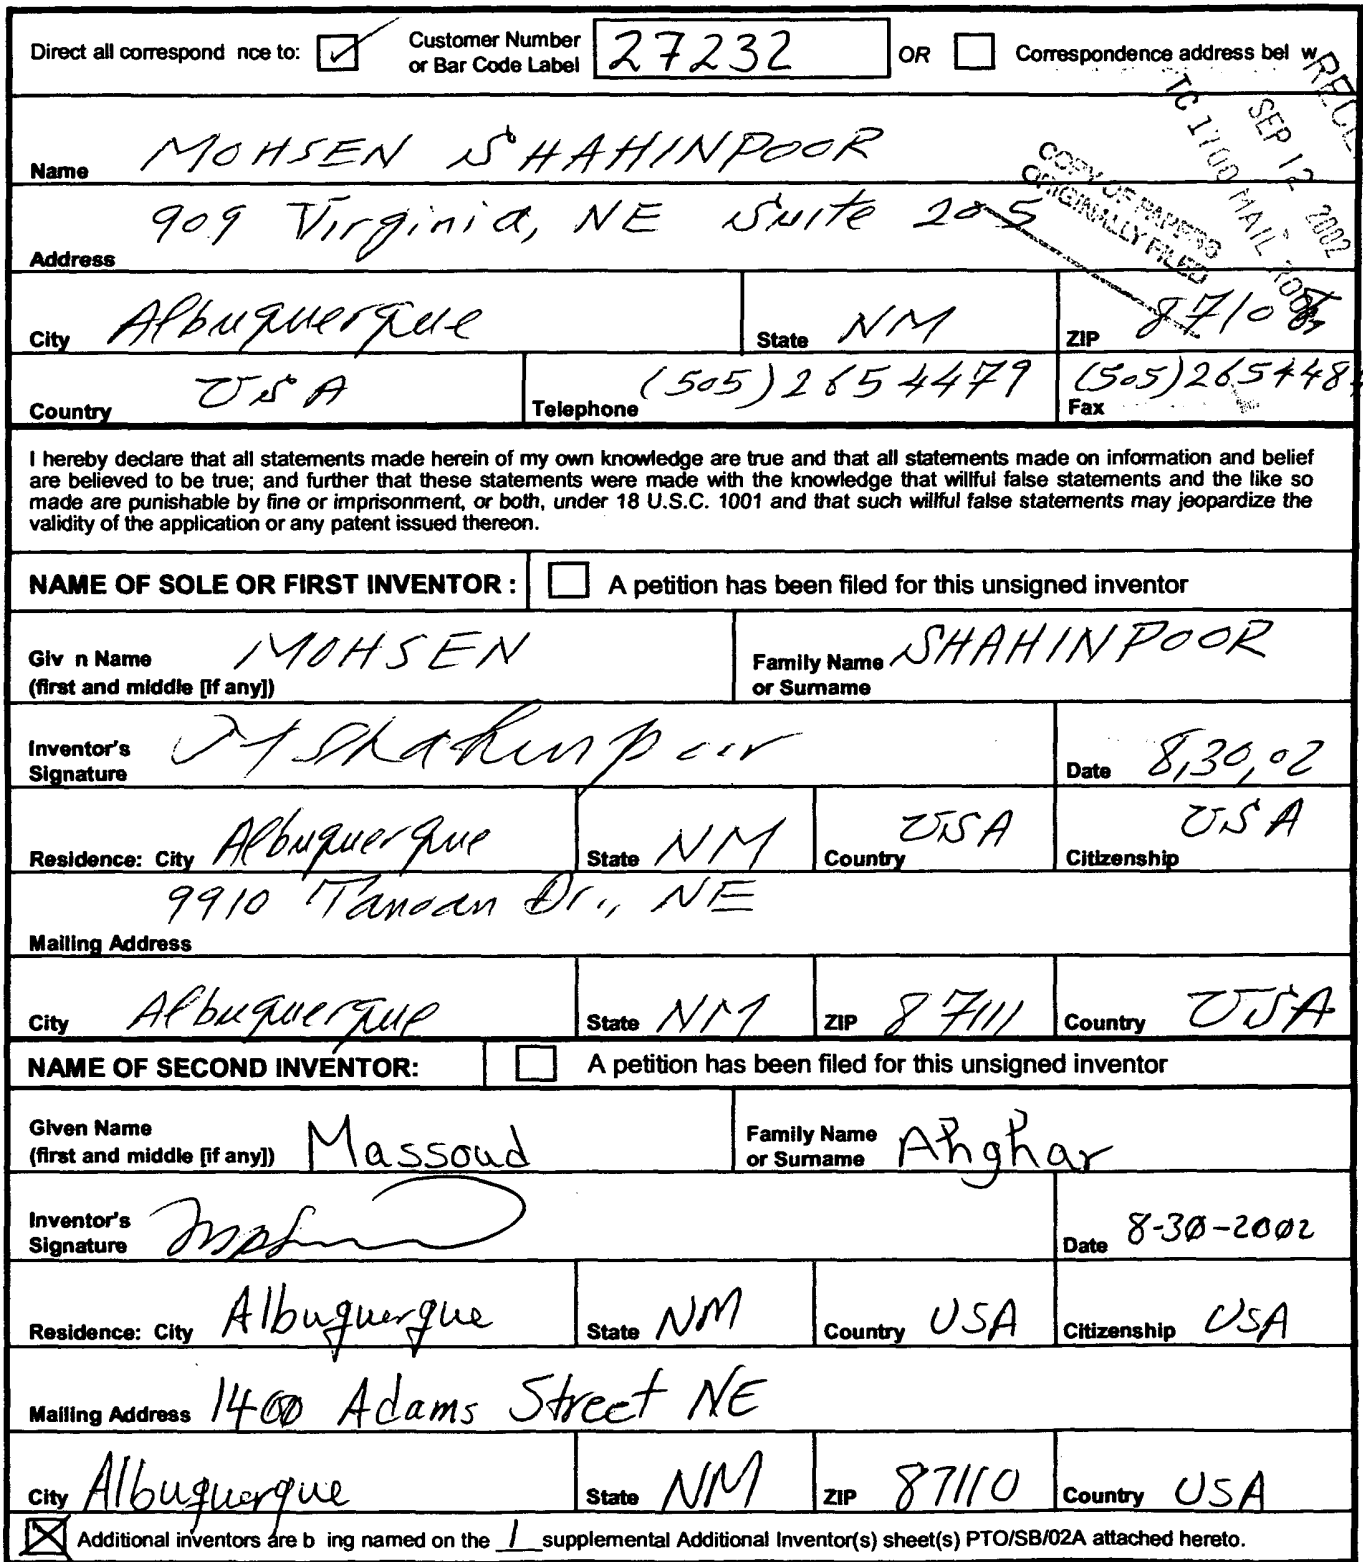 Direct all correspond nce to: Customer Number or Bar Code Label 27232 OR Correspondence address bel w
TC 1700 MAIL ROOM
SEP 12 2002
COPY OF PAPERS
ORIGINALLY FILED
Name MOHSEN SHAHINPOOR
Address 909 Virginia, NE Suite 205
City Albuquerque State NM ZIP 87108
Country USA Telephone (505) 265 4479 Fax (505) 265448
I hereby declare that all statements made herein of my own knowledge are true and that all statements made on information and belief
are believed to be true; and further that these statements were made with the knowledge that willful false statements and the like so
made are punishable by fine or imprisonment, or both, under 18 U.S.C. 1001 and that such willful false statements may jeopardize the
validity of the application or any patent issued thereon.
NAME OF SOLE OR FIRST INVENTOR : A petition has been filed for this unsigned inventor
Giv n Name (first and middle [if any]) MOHSEN Family Name or Surname SHAHINPOOR
Inventor's Signature M Shahinpoor Date 8,30,02
Residence: City Albuquerque State NM Country USA Citizenship USA
Mailing Address 9910 Tanoan Dr., NE
City Albuquerque State NM ZIP 87111 Country USA
NAME OF SECOND INVENTOR: A petition has been filed for this unsigned inventor
Given Name (first and middle [if any]) Massoud Family Name or Surname Ahghar
Inventor's Signature Date 8-30-2002
Residence: City Albuquerque State NM Country USA Citizenship USA
Mailing Address 1400 Adams Street NE
City Albuquerque State NM ZIP 87110 Country USA
Additional inventors are b ing named on the 1 supplemental Additional Inventor(s) sheet(s) PTO/SB/02A attached hereto.